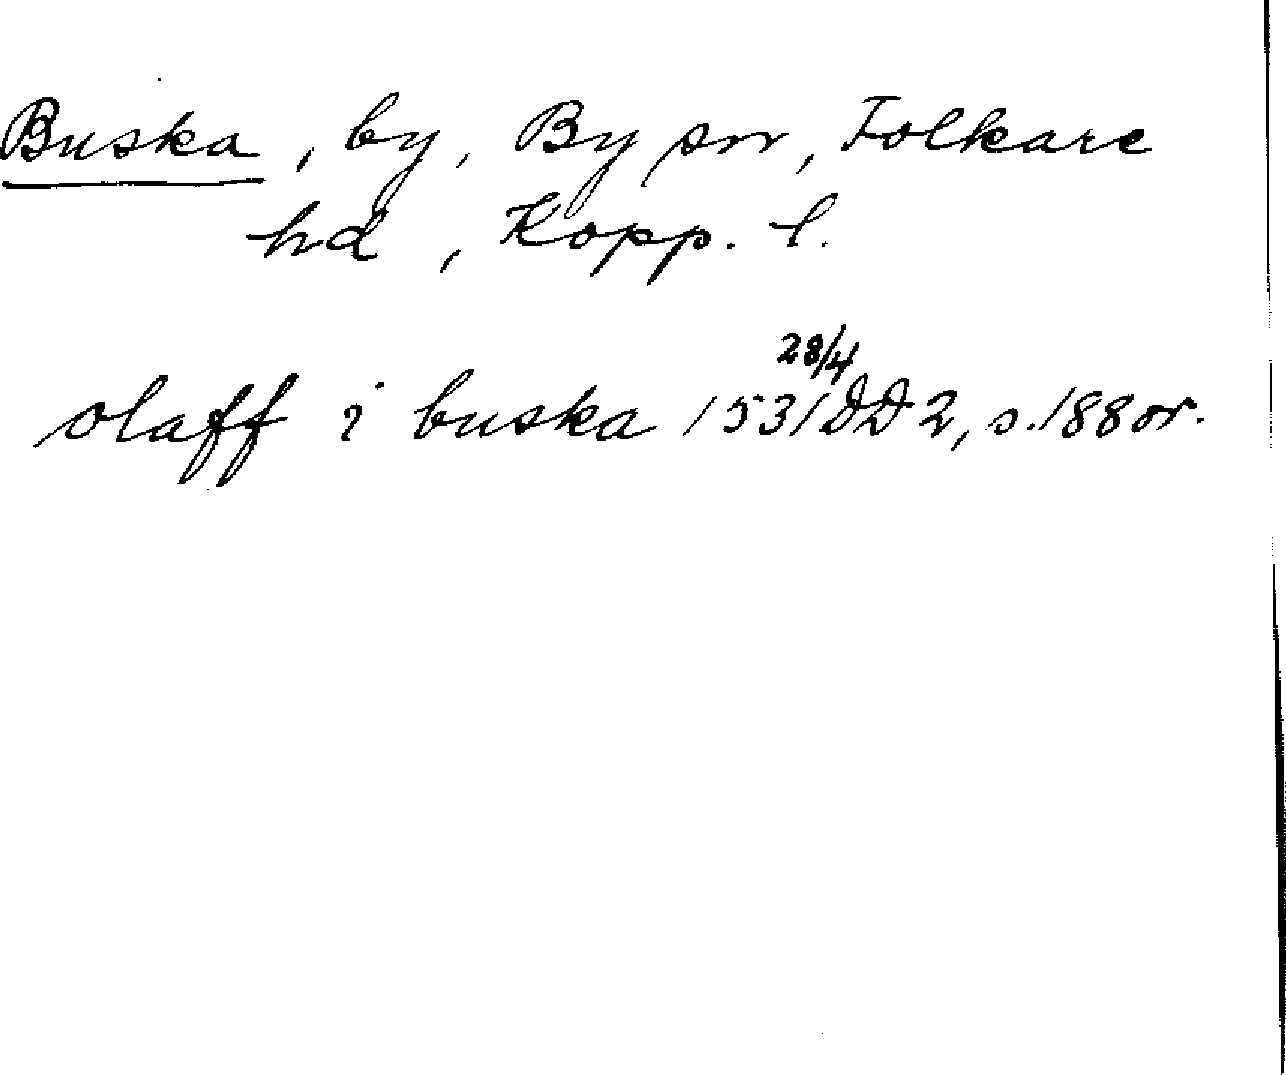 Buska, by, By sn, Folkare
hd, Kopp. l.
olaff i buska 1531 28/4 DD 2, s. 188 or.